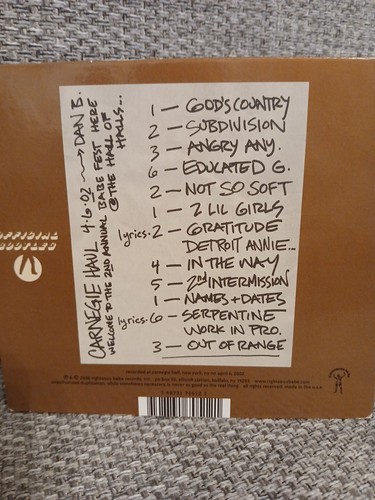 CARNEGIE HAUL 4.6.02 → DAN B.
WELCOME TO THE 2ND ANNUAL BABE FEST HERE
@ THE HALL OF
HALLS...
1 — GOD'S COUNTRY
2 — SUBDIVISION
3 — ANGRY ANY.
6 — EDUCATED G.
2 — NOT SO SOFT
1 — 2 LIL GIRLS
lyrics. 2 — GRATITUDE
DETROIT ANNIE...
4 — IN THE WAY
5 — 2nd INTERMISSION
1 — NAMES + DATES
lyrics. 6 — SERPENTINE
WORK IN PRO.
3 — OUT OF RANGE
OFFICIAL
BOOTLEG
recorded at carnegie hall, new york, ny on april 6, 2002